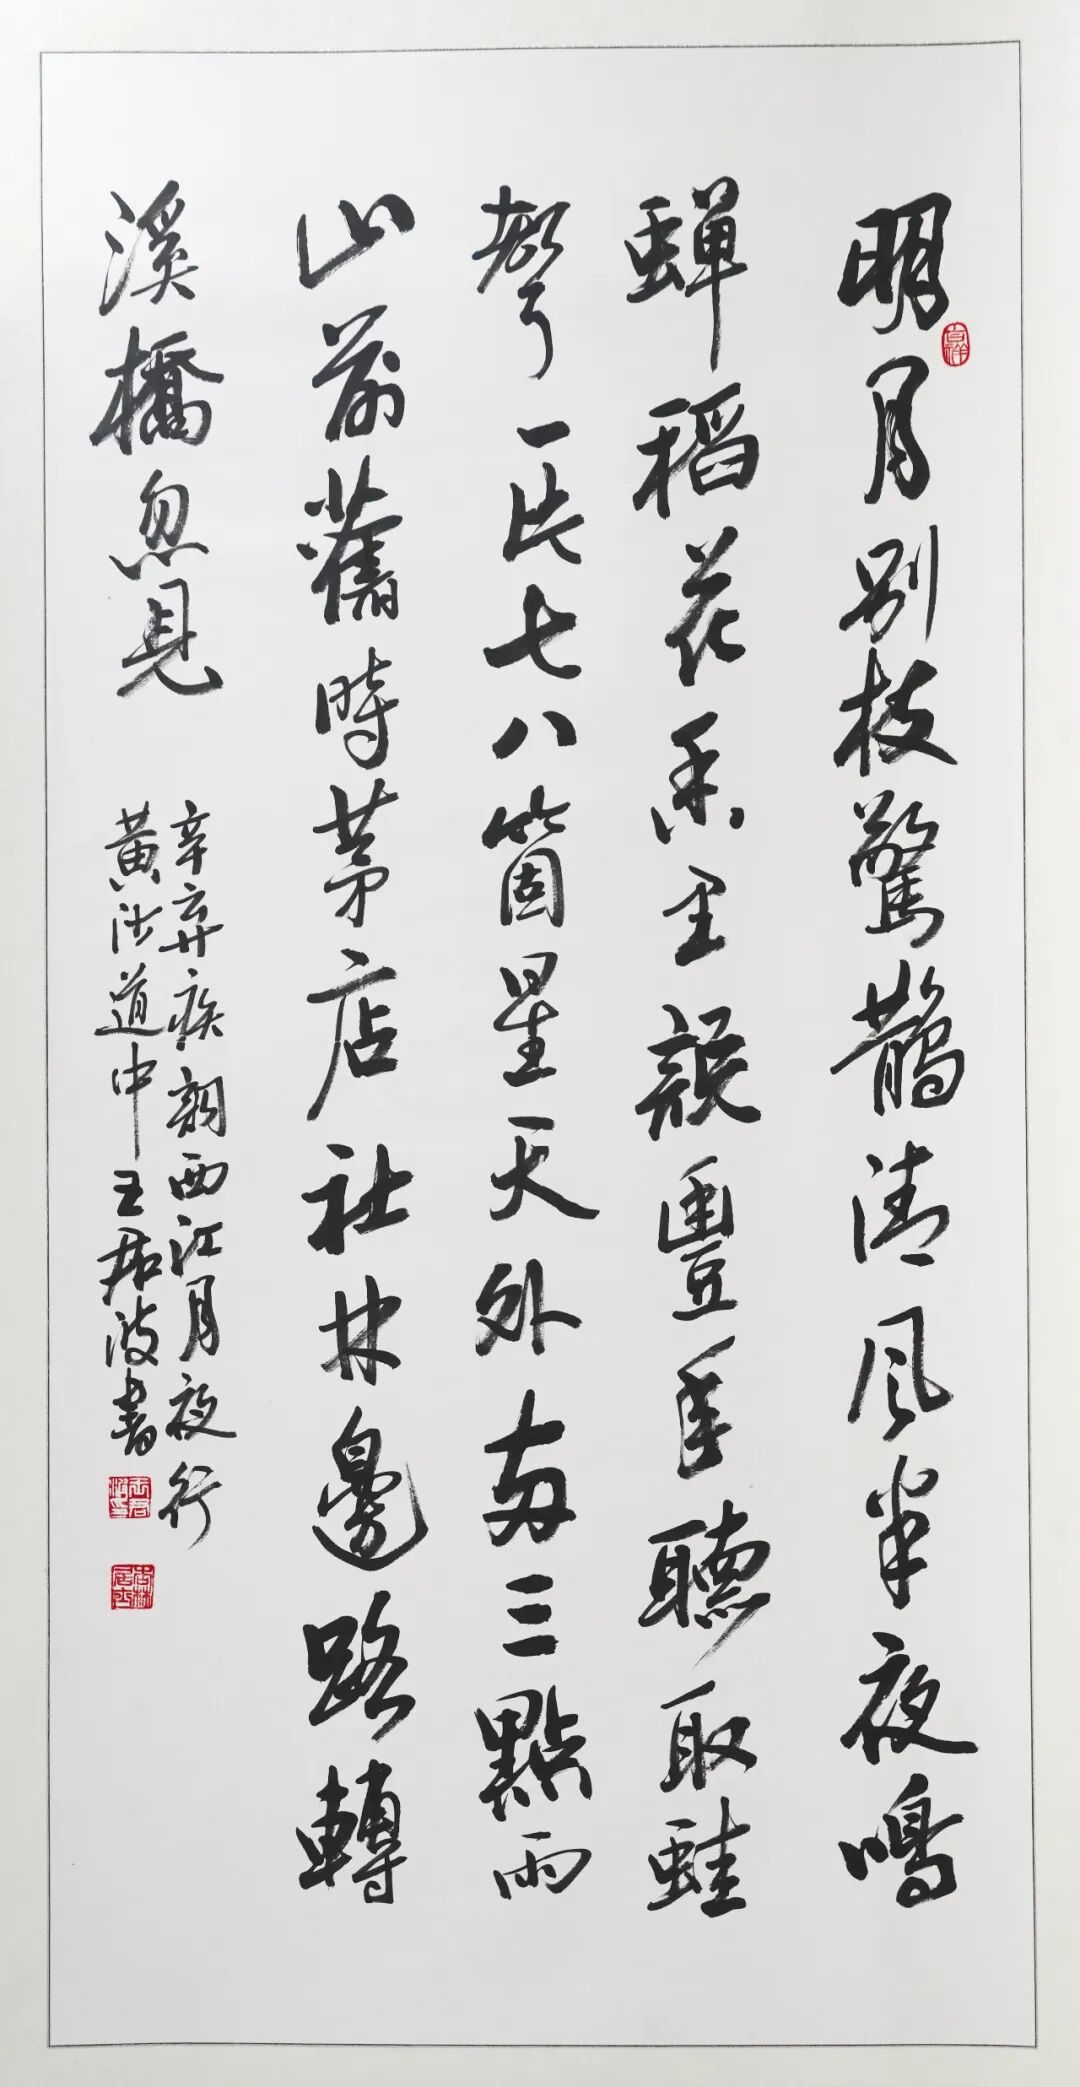 明月别枝驚鵲清風半夜鳴
蟬稻花香里說豐年聽取蛙
聲一片七八箇星天外兩三點雨
山前舊時茅店社林邊路轉
溪橋忽見
辛弃疾詞西江月夜行
黃沙道中王君波書
吉祥